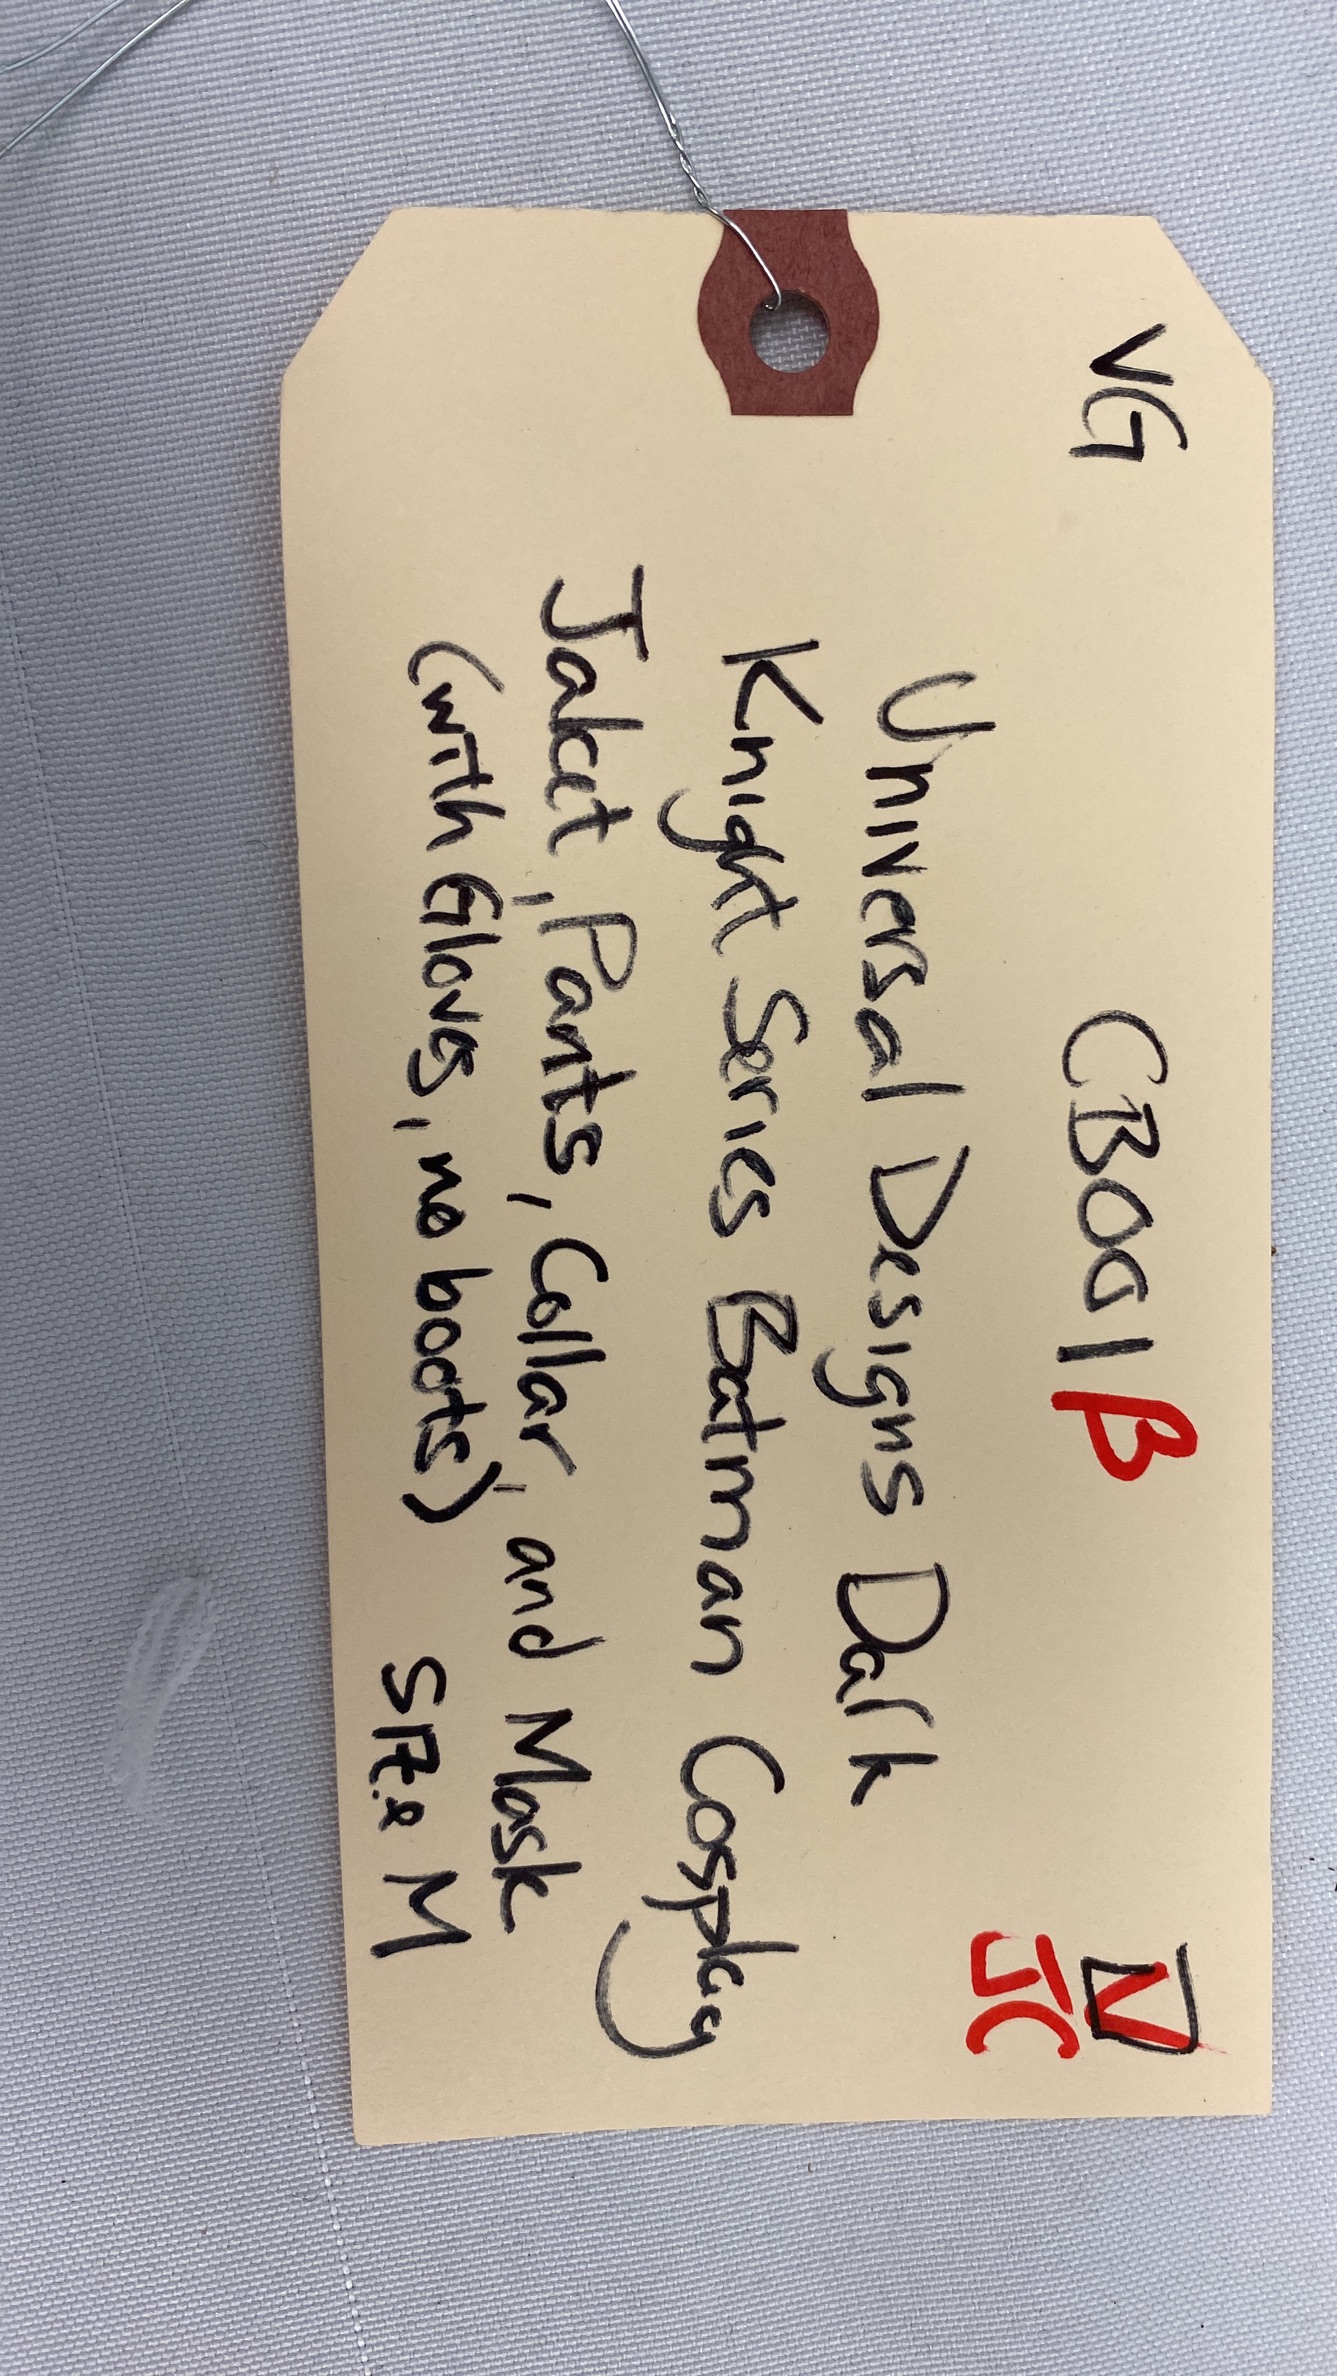 VG CB001β
JC
Universal Designs Dark
Knight Series Batman Cosplay
Jaket, Pants, Collar, and Mask
(with Gloves, no boots) SIZe M